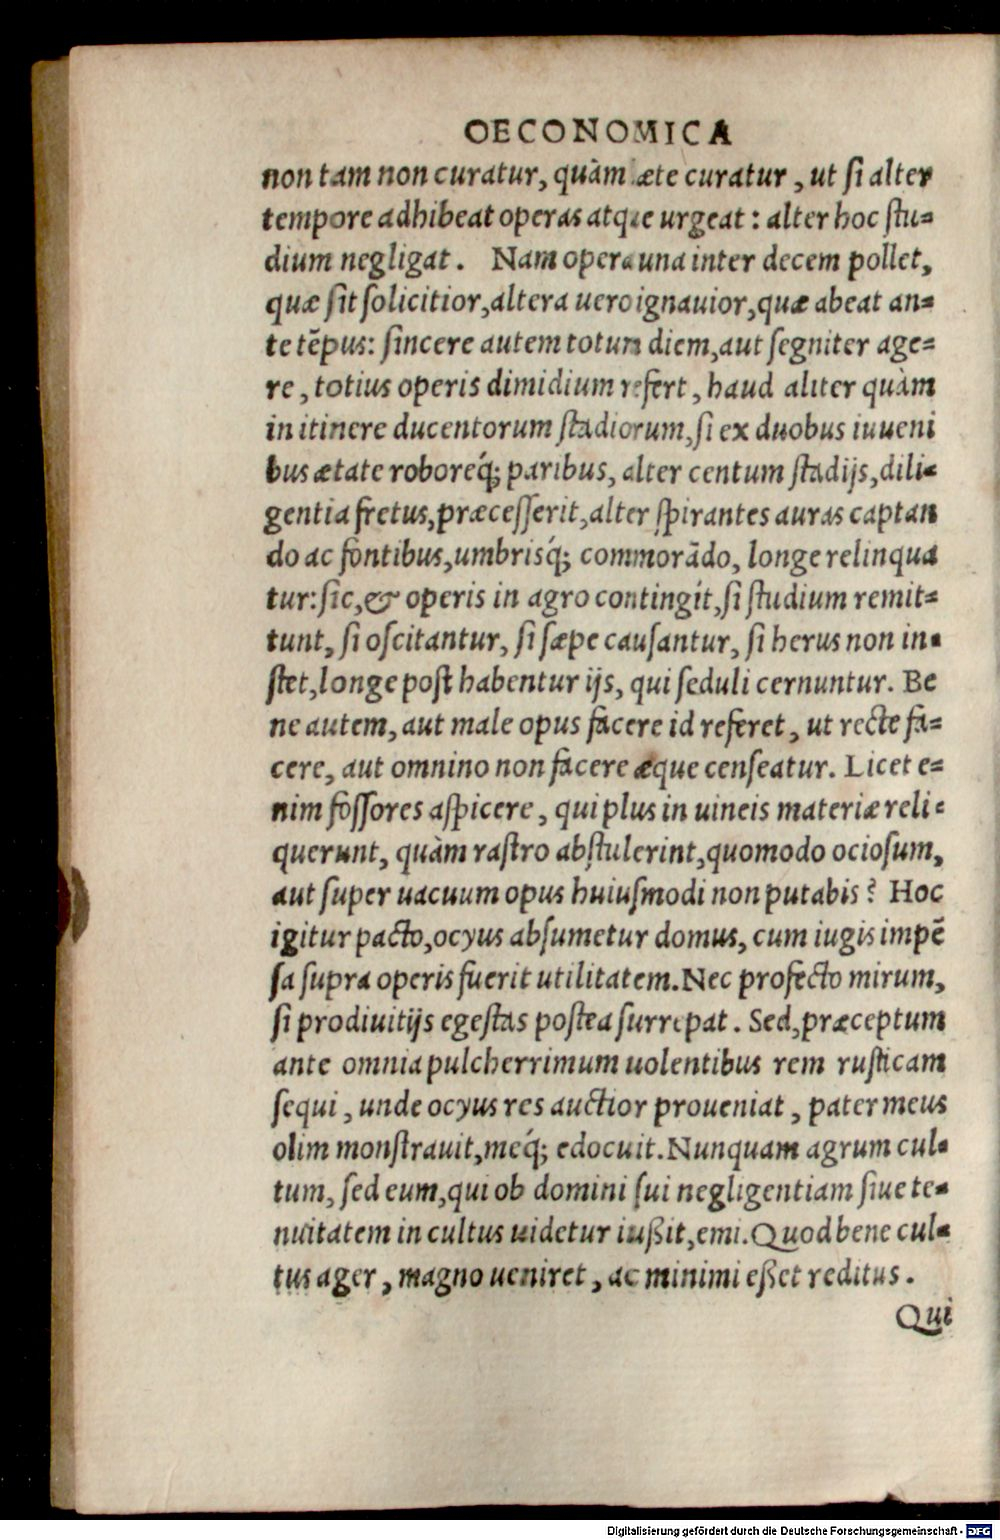 OECONOMICA
non tam non curatur, quàm æte curatur, ut ſi alter
tempore adhibeat operas atque urgeat: alter hoc ſtu-
dium negligat. Nam opera una inter decem pollet,
quæ ſit ſolicitior, altera uero ignauior, quæ abeat an-
te tẽpus: ſincere autem totum diem, aut ſegniter age-
re, totius operis dimidium refert, haud aliter quàm
in itinere ducentorum ſtadiorum, ſi ex duobus iuueni
bus ætate roboreq́; paribus, alter centum ſtadijs, dili-
gentia fretus, præceſſerit, alter ſpirantes auras captan
do ac fontibus, umbrisq́; commorãdo, longe relinqua
tur: ſic, & operis in agro contingit, ſi ſtudium remit-
tunt, ſi oſcitantur, ſi ſæpe cauſantur, ſi herus non in-
ſtet, longe poſt habentur ijs, qui ſeduli cernuntur. Be
ne autem, aut male opus facere id referet, ut recte fa-
cere, aut omnino non facere æque cenſeatur. Licet e-
nim foſſores aſpicere, qui plus in uineis materiæ reli-
querunt, quàm raſtro abſtulerint, quomodo ocioſum,
aut ſuper uacuum opus huiuſmodi non putabis? Hoc
igitur pacto, ocyus abſumetur domus, cum iugis impẽ
ſa ſupra operis fuerit utilitatem. Nec profecto mirum,
ſi pro diuitijs egeſtas poſtea ſurrepat. Sed, præceptum
ante omnia pulcherrimum uolentibus rem ruſticam
ſequi, unde ocyus res auctior proueniat, pater meus
olim monſtrauit, meq́; edocuit. Nunquam agrum cul-
tum, ſed eum, qui ob domini ſui negligentiam ſiue te-
nuitatem in cultus uidetur iußit, emi. Quod bene cul-
tus ager, magno ueniret, ac minimi eßet reditus.
Qui
Digitalisierung gefördert durch die Deutsche Forschungsgemeinschaft - DFG